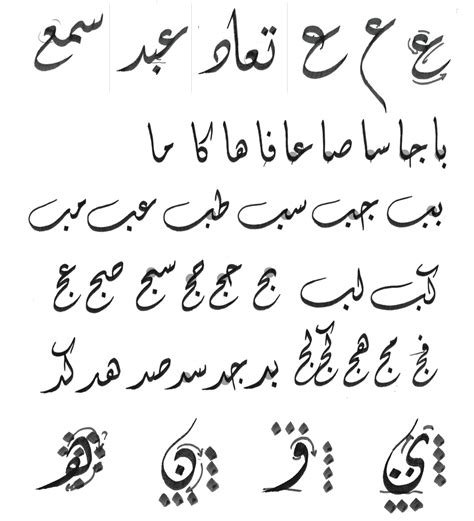 ع ع ع تعاد عبد سمع
با جا سا صا عا فا ها كا ما
بب جب سب طب عب مب
كب لب بج جج سج صج عج
فج مج هج كج لج بد جد سد صد هد كد
و ن